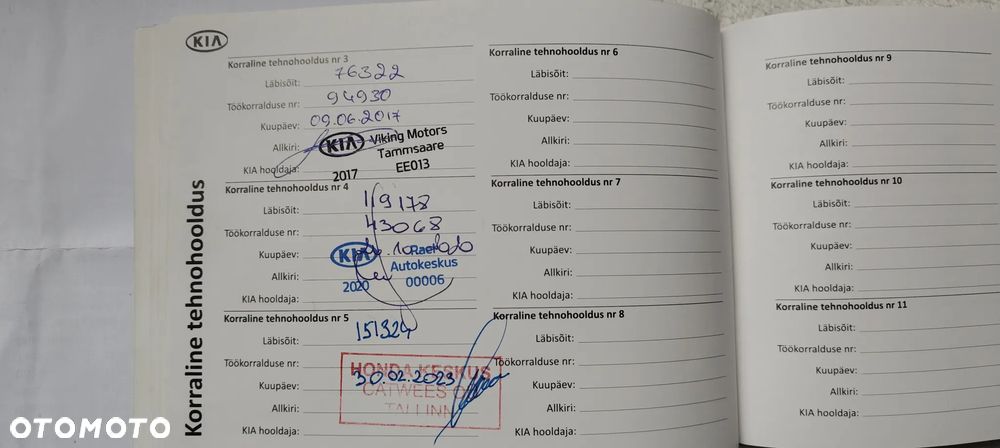 KIA
Korraline tehnohooldus
Korraline tehnohooldus nr 3
Läbisõit: 76322
Töökorralduse nr: 94930
Kuupäev: 09.06.2017
Allkiri:
KIA hooldaja:
KIA Viking Motors
Tammsaare
2017 EE013
Korraline tehnohooldus nr 4
Läbisõit: 119178
Töökorralduse nr: 43068
Kuupäev:
Allkiri:
KIA hooldaja:
KIA
Autokeskus
2020 00006
Korraline tehnohooldus nr 5
Läbisõit: 151324
Töökorralduse nr:
Kuupäev: 30.02.2023
Allkiri:
KIA hooldaja:
HONDA KESKUS
CATWEES
TALLINN
Korraline tehnohooldus nr 6
Läbisõit:
Töökorralduse nr:
Kuupäev:
Allkiri:
KIA hooldaja:
Korraline tehnohooldus nr 7
Läbisõit:
Töökorralduse nr:
Kuupäev:
Allkiri:
KIA hooldaja:
Korraline tehnohooldus nr 8
Läbisõit:
Töökorralduse nr:
Kuupäev:
Allkiri:
KIA hooldaja:
Korraline tehnohooldus nr 9
Läbisõit:
Töökorralduse nr:
Kuupäev:
Allkiri:
KIA hooldaja:
Korraline tehnohooldus nr 10
Läbisõit:
Töökorralduse nr:
Kuupäev:
Allkiri:
KIA hooldaja:
Korraline tehnohooldus nr 11
Läbisõit:
Töökorralduse nr:
Kuupäev:
Allkiri:
KIA hooldaja:
OTOMOTO